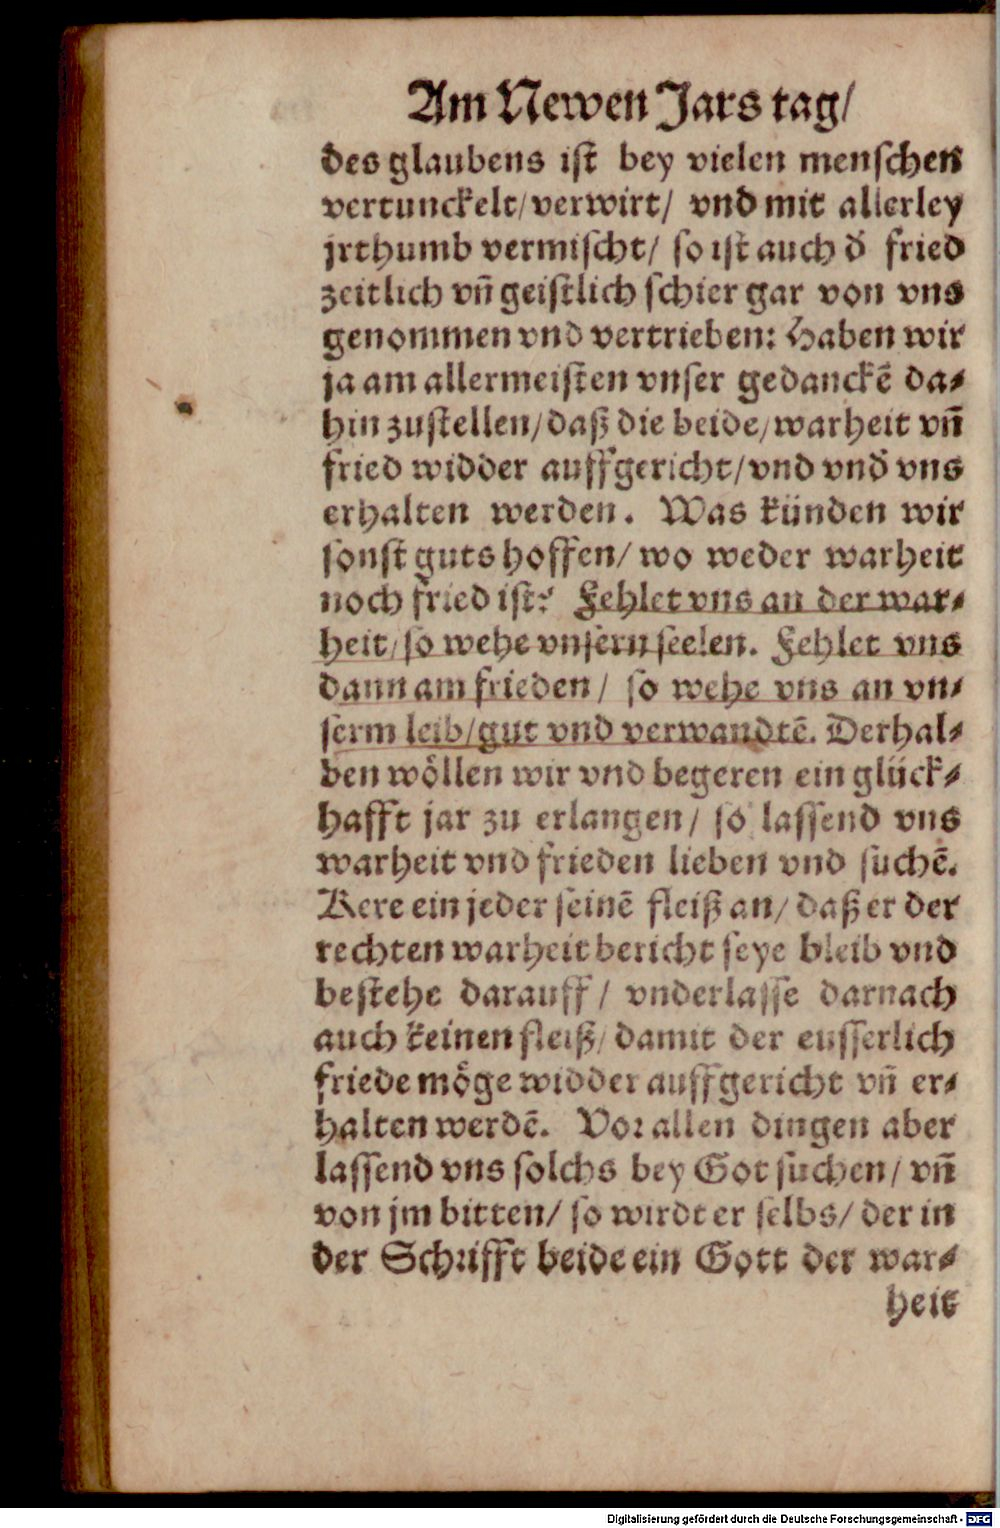 Am Newen Jars tag/
des glaubens ist bey vielen menschen
vertunckelt/verwirt/ vnd mit allerley
jrthumb vermischt/ so ist auch d̄ fried
zeitlich vn̄ geistlich schier gar von vns
genommen vnd vertrieben: Haben wir
ja am allermeisten vnser gedanckē da⸗
hin zustellen/daß die beide/warheit vn̄
fried widder auffgericht/vnd vnd̄ vns
erhalten werden. Was künden wir
sonst guts hoffen/ wo weder warheit
noch fried ist? Fehlet vns an der war⸗
heit/so wehe vnsern seelen. Fehlet vns
dann am frieden/ so wehe vns an vn⸗
serm leib/gut vnd verwandtē. Derhal⸗
ben wöllen wir vnd begeren ein glück⸗
hafft jar zu erlangen/ so lassend vns
warheit vnd frieden lieben vnd suchē.
Kere ein jeder seinē fleiß an/ daß er der
rechten warheit bericht seye bleib vnd
bestehe darauff/ vnderlasse darnach
auch keinen fleiß/ damit der eusserlich
friede möge widder auffgericht vn̄ er⸗
halten werdē. Vor allen dingen aber
lassend vns solchs bey Got suchen/ vn̄
von jm bitten/ so wirdt er selbs/ der in
der Schrifft beide ein Gott der war⸗
heit
Digitalisierung gefördert durch die Deutsche Forschungsgemeinschaft - DFG